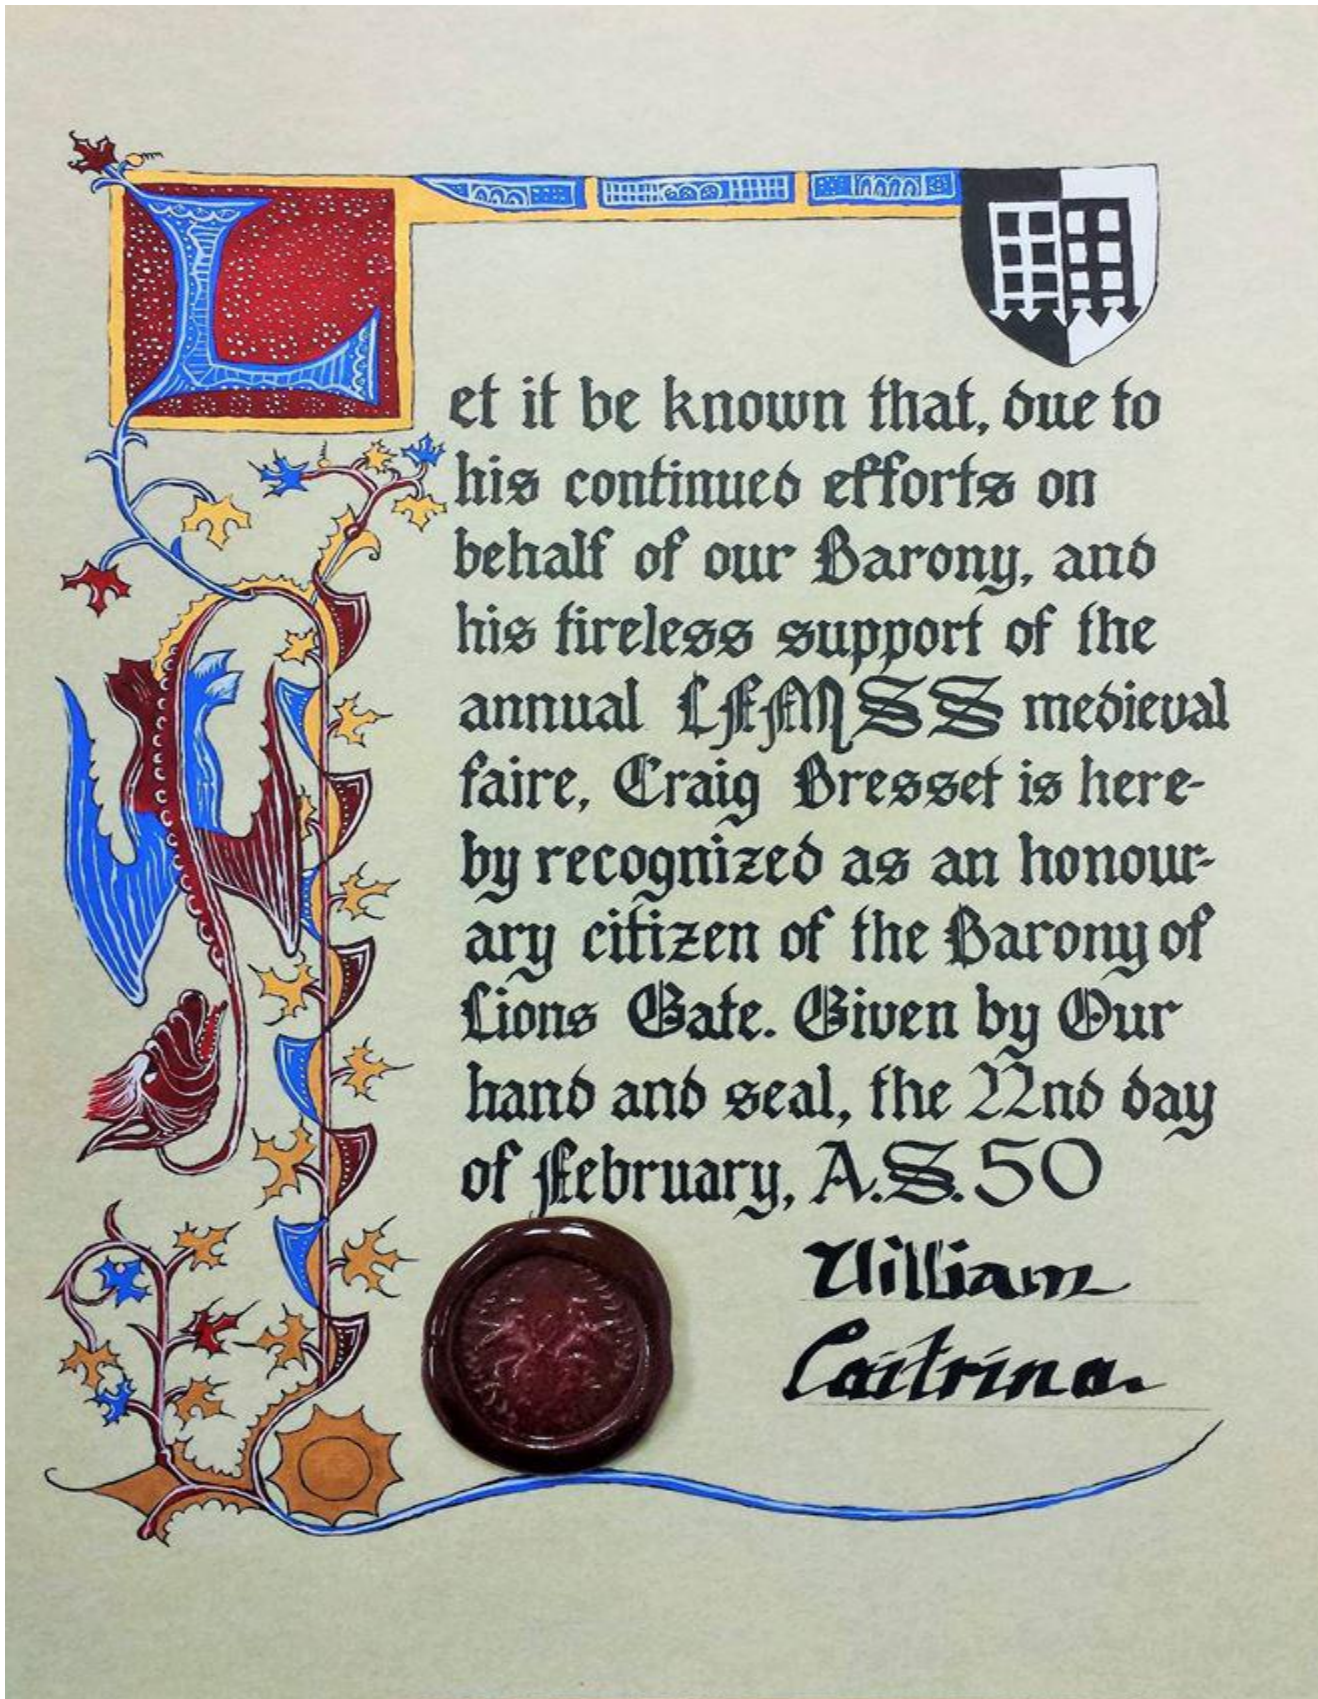 Let it be known that, due to
his continued efforts on
behalf of our Barony, and
his tireless support of the
annual LFMSS medieval
faire, Craig Bresset is here-
by recognized as an honour-
ary citizen of the Barony of
Lions Gate. Given by Our
hand and seal, the 22nd day
of February, A.S. 50
William
Caitrina.